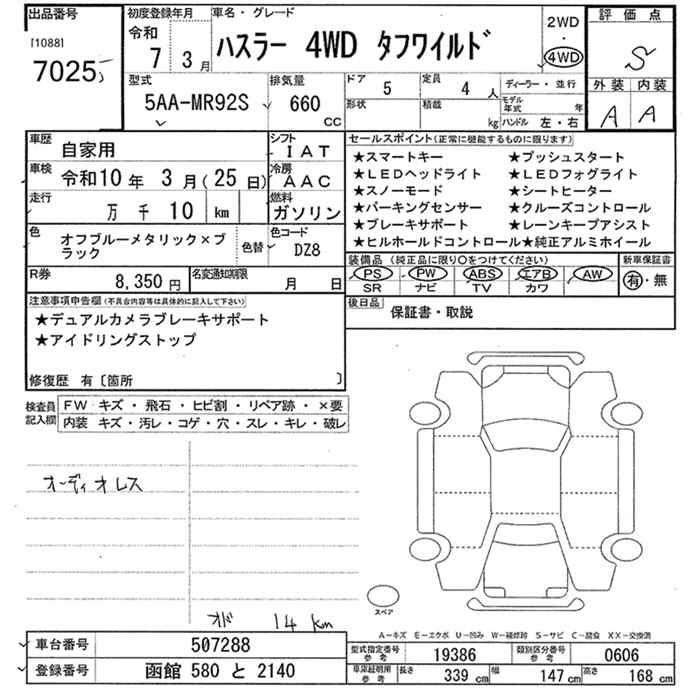 出品番号
[1088]
7025
初度登録年月
令和
7 3月
車名・グレード
ハスラー 4WD タフワイルド
2WD
・
4WD
評価点
S
外装 内装
A A
型式
5AA-MR92S
排気量
660
CC
ドア
5
定員
4 人
ディーラー・並行
形状
積載
kg
モデル年式 年
ハンドル 左・右
車歴
自家用
シフト
IAT
車検
令和10年 3月(25日)
冷房
AAC
走行
万 千 10 km
燃料
ガソリン
色
オフブルーメタリック×ブラック
色替
色コード
DZ8
R券
8,350円
名変通知期限
月 日
セールスポイント(正常に機能するものに限ります)
★スマートキー ★プッシュスタート
★LEDヘッドライト ★LEDフォグライト
★スノーモード ★シートヒーター
★パーキングセンサー ★クルーズコントロール
★ブレーキサポート ★レーンキープアシスト
★ヒルホールドコントロール★純正アルミホイール
装備品(純正品に限り○をつけてください)
PS PW ABS エアB AW
SR ナビ TV カワ
新車保証書
有・無
後日品
保証書・取説
注意事項申告欄(不具合内容等は具体的に記入して下さい)
★デュアルカメラブレーキサポート
★アイドリングストップ
修復歴 有〔箇所 〕
検査員記入欄
FW キズ・飛石・ヒビ割・リペア跡・×要
内装 キズ・汚レ・コゲ・穴・スレ・キレ・破レ
オーディオレス
オド 14 km
スペア
A-キズ E-エクボ U-凹み W-補修跡 S-サビ C-腐食 XX-交換済
車台番号
507288
登録番号
函館 580 と 2140
型式指定番号
参考
19386
類別区分番号
参考
0606
車庫証明用
参考
長さ
339 cm
幅
147 cm
高さ
168 cm